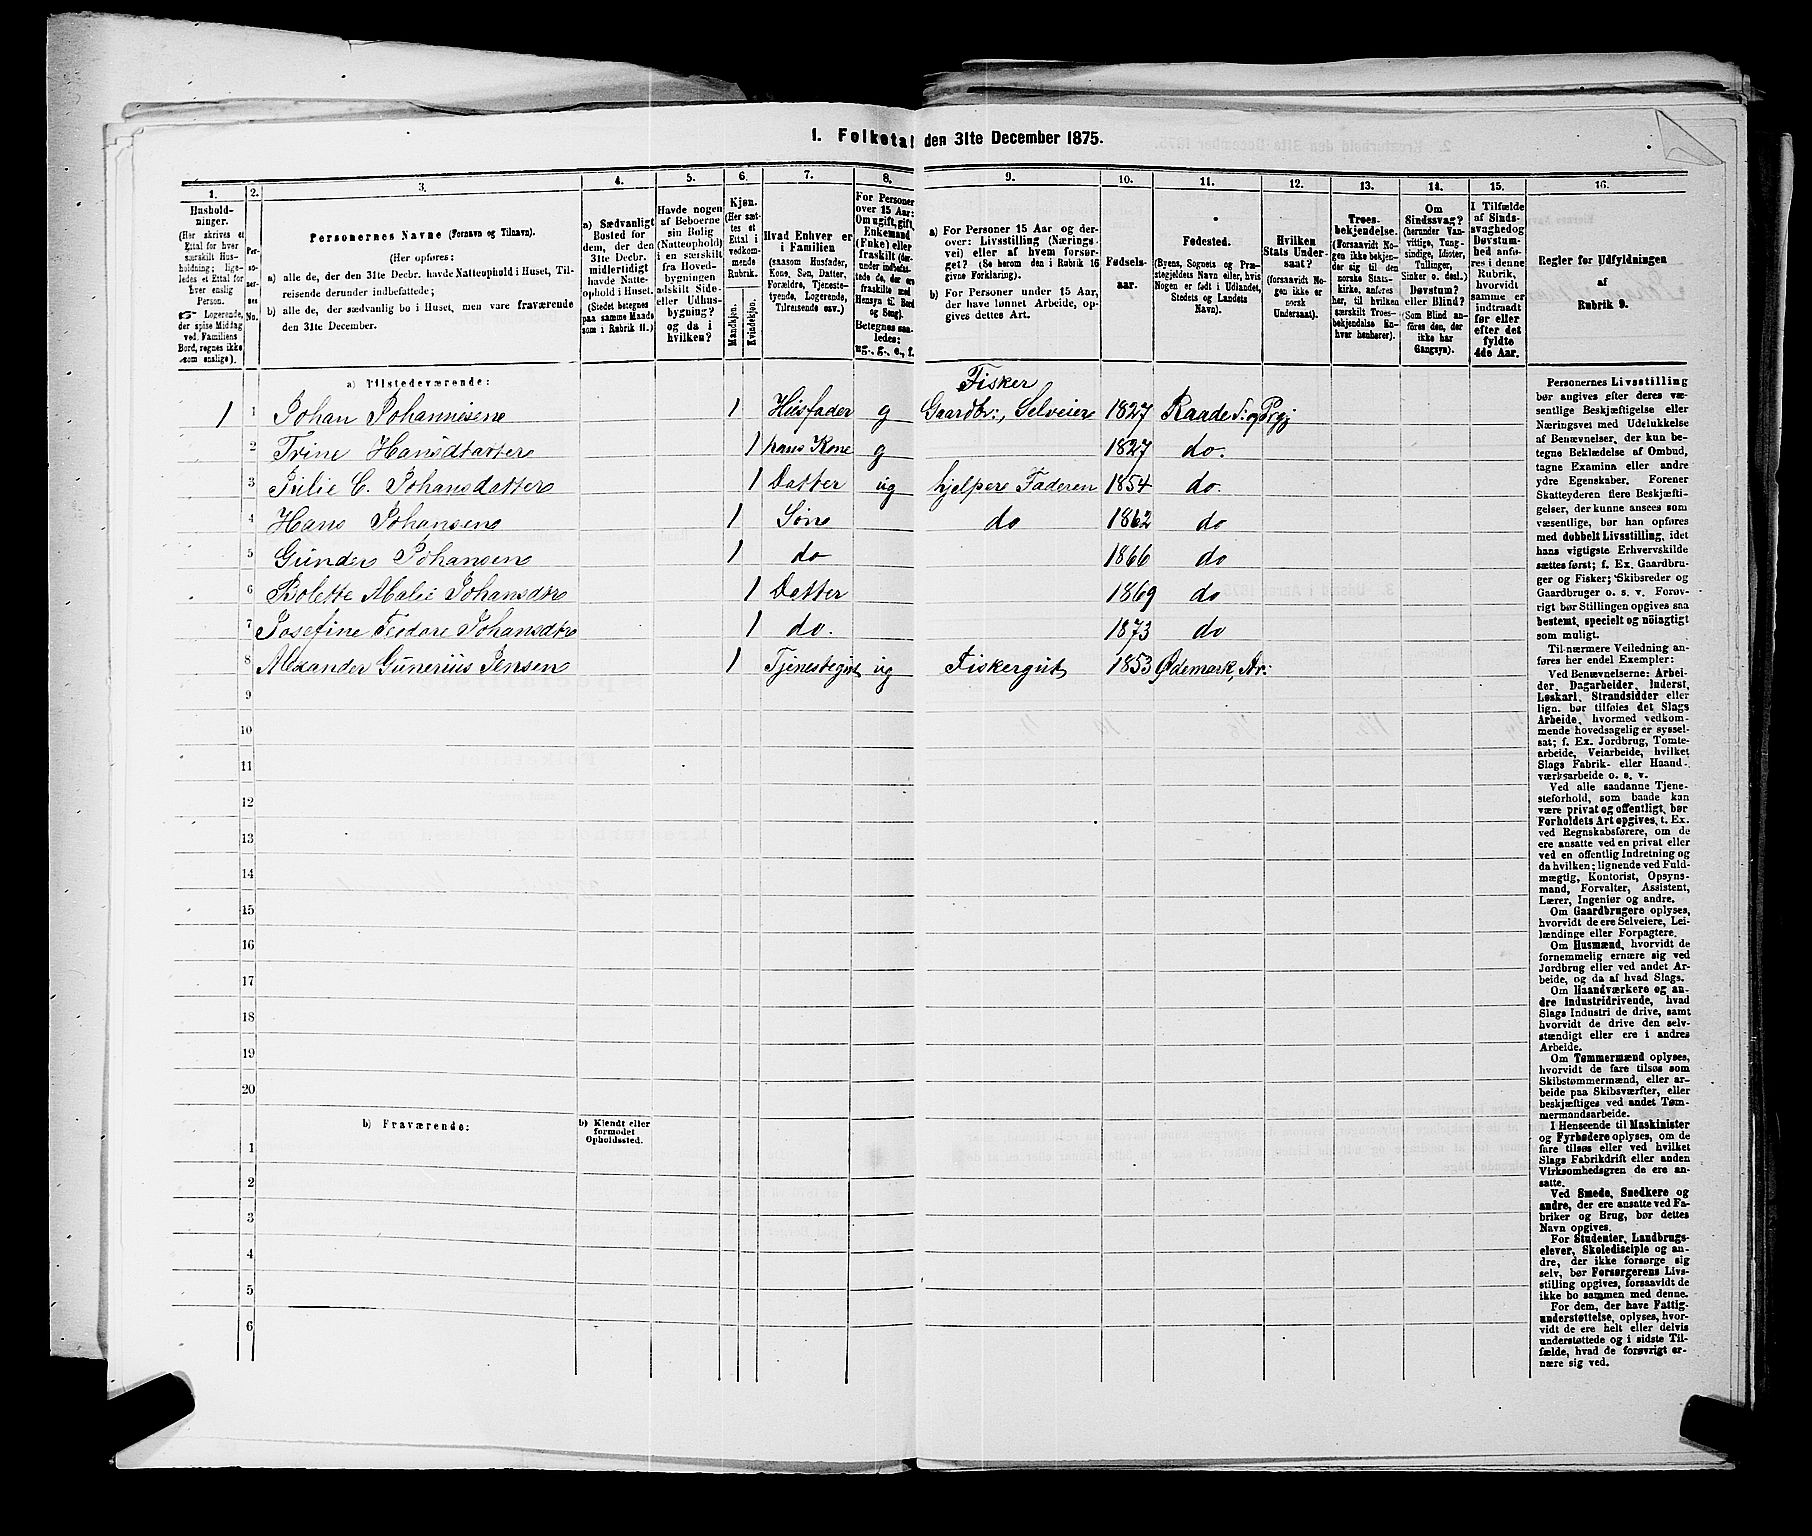 1. Folketal den 31te December 1875.
1. 2. 3. 4. 5. 6. 7. 8. 9. 10. 11. 12. 13. 14. 15. 16.
Hushold-
ninger.
(Her skrives et
Ettal for hver
særskilt Hus-
holdning; lige-
ledes et Ettal for
hver enslig
Person.
☞ Logerende,
der spise Middag
ved Familiens
Bord, regnes ikke
som enslige).
Per-
so-
ner-
nes
No.
Personernes Navne (Fornavn og Tilnavn).
(Her opføres:
a) alle de, der den 31te Decbr. havde Natteophold i Huset, Til-
reisende derunder indbefattede;
b) alle de, der sædvanlig bo i Huset, men vare fraværende
den 31te December.
a) Sædvanligt
Bosted for
dem, der den
31te Decbr.
midlertidigt
havde Natte-
ophold i Huset.
(Stedet betegnes
paa samme Maade
som i Rubrik 11.)
Havde nogen
af Beboerne
sin Bolig
(Natteophold)
i en særskilt
fra Hoved-
bygningen
adskilt Side-
eller Udhus-
bygning?
og da i
hvilken?
Kjøn.
(Her sæt-
tes et
Ettal i
vedkom-
mende
Rubrik.
Mandkjøn.
Kvindekjøn.
Hvad Enhver er
i Familien
(saasom Husfader,
Kone, Søn, Datter,
Forældre, Tjeneste-
tyende, Logerende,
Tilreisende osv.)
For Personer
over 15 Aar:
Om ugift, gift,
Enkemand
(Enke) eller
fraskilt (der-
under indbefat-
tede de, der ere
fraskilte med
Hensyn til Bord
og Seng).
Betegnes saa-
ledes:
ug., g., e., f.
a) For Personer 15 Aar og der-
over: Livsstilling (Nærings-
vei) eller af hvem forsør-
get? (Se herom den i Rubrik 16
givne Forklaring).
b) For Personer under 15 Aar,
der have lønnet Arbeide, op-
gives dettes Art.
Fødsels-
aar.
Fødested.
(Byens, Sognets og Præ-
stegjeldets Navn eller, hvis
Nogen er født i Udlandet,
Stedets og Landets
Navn).
Hvilken
Stats Under-
saat?
(forsaavidt No-
gen ikke er
norsk
Undersaat).
Troes-
bekjendelse.
(Forsaavidt No-
gen ikke bekjen-
der sig til den
norske Stats-
kirke, anføres
her, til hvilken
særskilt Troes-
bekjendelse En-
hver henhører).
Om
Sindssvag?
(herunder Van-
vittige, Tung-
sindige, Idioter,
Tullinger,
Sinker o. desl.)
Døvstum?
eller Blind?
(Som Blind an-
føres den, der
ikke har
Gangsyn).
I Tilfælde
af Sinds-
svaghed og
Døvstum-
hed anfø-
res i denne
Rubrik,
hvorvidt
samme er
indtraadt
før eller
efter det
fyldte
4de Aar.
Regler for Udfyldningen
af
Rubrik 9.
a) Tilstedeværende:
Fisker
1 1 Johan Johannesene 1 Husfader g Gaardbr:, Selveier 1827 Raade S: og Prgj
2 Trine Hansdattere 1 hans Kone g 1827 do.
3 Julie C. Johansdattere 1 Datter ug hjelpere Faderen 1854 do.
4 Hans Johansene 1 Søne do 1862 do
5 Gunder Johansen 1 do 1866 do
6 Bolette Malie Johansdtre 1 Datter 1869 do
7 Josefine Teodore Johansdtre 1 do. 1873 do
8 Alexander Gunerius Jensen 1 Tjenestegut ug Fiskergut 1853 Ødemark, Ar:
9
10
11
12
13
14
15
16
17
18
19
20
b) Fraværende:
b) Kjendt eller
formodet
Opholdssted.
1
2
3
4
5
6
Personernes Livsstilling
bør angives efter deres væ-
sentlige Beskjæftigelse eller
Næringsvei med Udelukkelse
af Benævnelser, der kun be-
tegne Beklædelse af Ombud,
tagne Examina eller andre
ydre Egenskaber. Forener
Skatteyderen flere Beskjæfti-
gelser, der kunne ansees som
væsentlige, bør han opføres
med dobbelt Livsstilling, idet
hans vigtigste Erhvervskilde
sættes først; f. Ex. Gaardbru-
ger og Fisker; Skibsreder og
Gaardbruger o. s. v. Forøv-
rigt bør Stillingen opgives saa
bestemt, specielt og nøiagtigt
som muligt.
Til nærmere Veiledning an-
føres her endel Exempler:
Ved Benævnelserne: Arbei-
der, Dagarbeider, Inderst,
Løskarl, Strandsidder eller
lign. bør tilføies det Slags
Arbeide, hvormed vedkom-
mende hovedsagelig er syssel-
sat; f. Ex. Jordbrug, Tomte-
arbeide, Veiarbeide, hvilket
Slags Fabrik- eller Haand-
værksarbeide o. s. v.
Ved alle saadanne Tjene-
steforhold, som baade kan
være privat og offentligt, bør
Forholdets Art opgives, t. Ex.
ved Regnskabsførere, om de
ere ansatte ved en privat eller
ved en offentlig Indretning og
da hvilken; lignende ved Fuld-
mægtig, Kontorist, Opsyns-
mand, Forvalter, Assistent,
Lærer, Ingeniør og andre.
Om Gaardbrugere oplyses,
hvorvidt de ere Selveiere, Lei-
lændinge eller Forpagtere.
Om Husmænd, hvorvidt de
fornemmelig ernære sig ved
Jordbrug eller ved andet Ar-
beide, og da af hvad Slags.
Om Haandværkere og an-
dre Industridrivende, hvad
Slags Industri de drive, samt
hvorvidt de drive den selv-
stændigt eller ere i andres
Arbeide.
Om Tømmermænd oplyses,
hvorvidt de fare tilsøs som
Skibstømmermænd, eller ar-
beide paa Skibsværfter, eller
beskjæftiges ved andet Tøm-
mermandsarbeide.
I Henseende til Maskinister
og Fyrbødere oplyses, om de
fare tilsøs eller ved hvilket
Slags Fabrikdrift eller anden
Virksomhedsgren de ere an-
satte.
Ved Smede, Snedkere og
andre, der ere ansatte ved Fa-
briker og Brug, bør dettes
Navn opgives.
For Studenter, Landbrugs-
elever, Skoledisciple og an-
dre, der ikke forsørge sig
selv, bør Forsørgerens Livs-
stilling opgives, forsaavidt de
ikke bo sammen med denne.
For dem, der have Fattig-
understøttelse, oplyses, hvor-
vidt de ere helt eller delvis
understøttede og i sidste Til-
fælde, hvad de forøvrigt er-
nære sig ved.